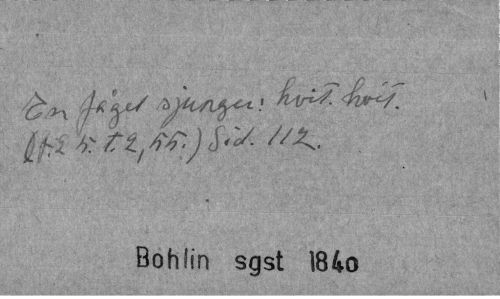 En fågel sjunger: hvit. hvit.
5. t. 2, 55.) Sid. 112.
Bohlin sgst 1840